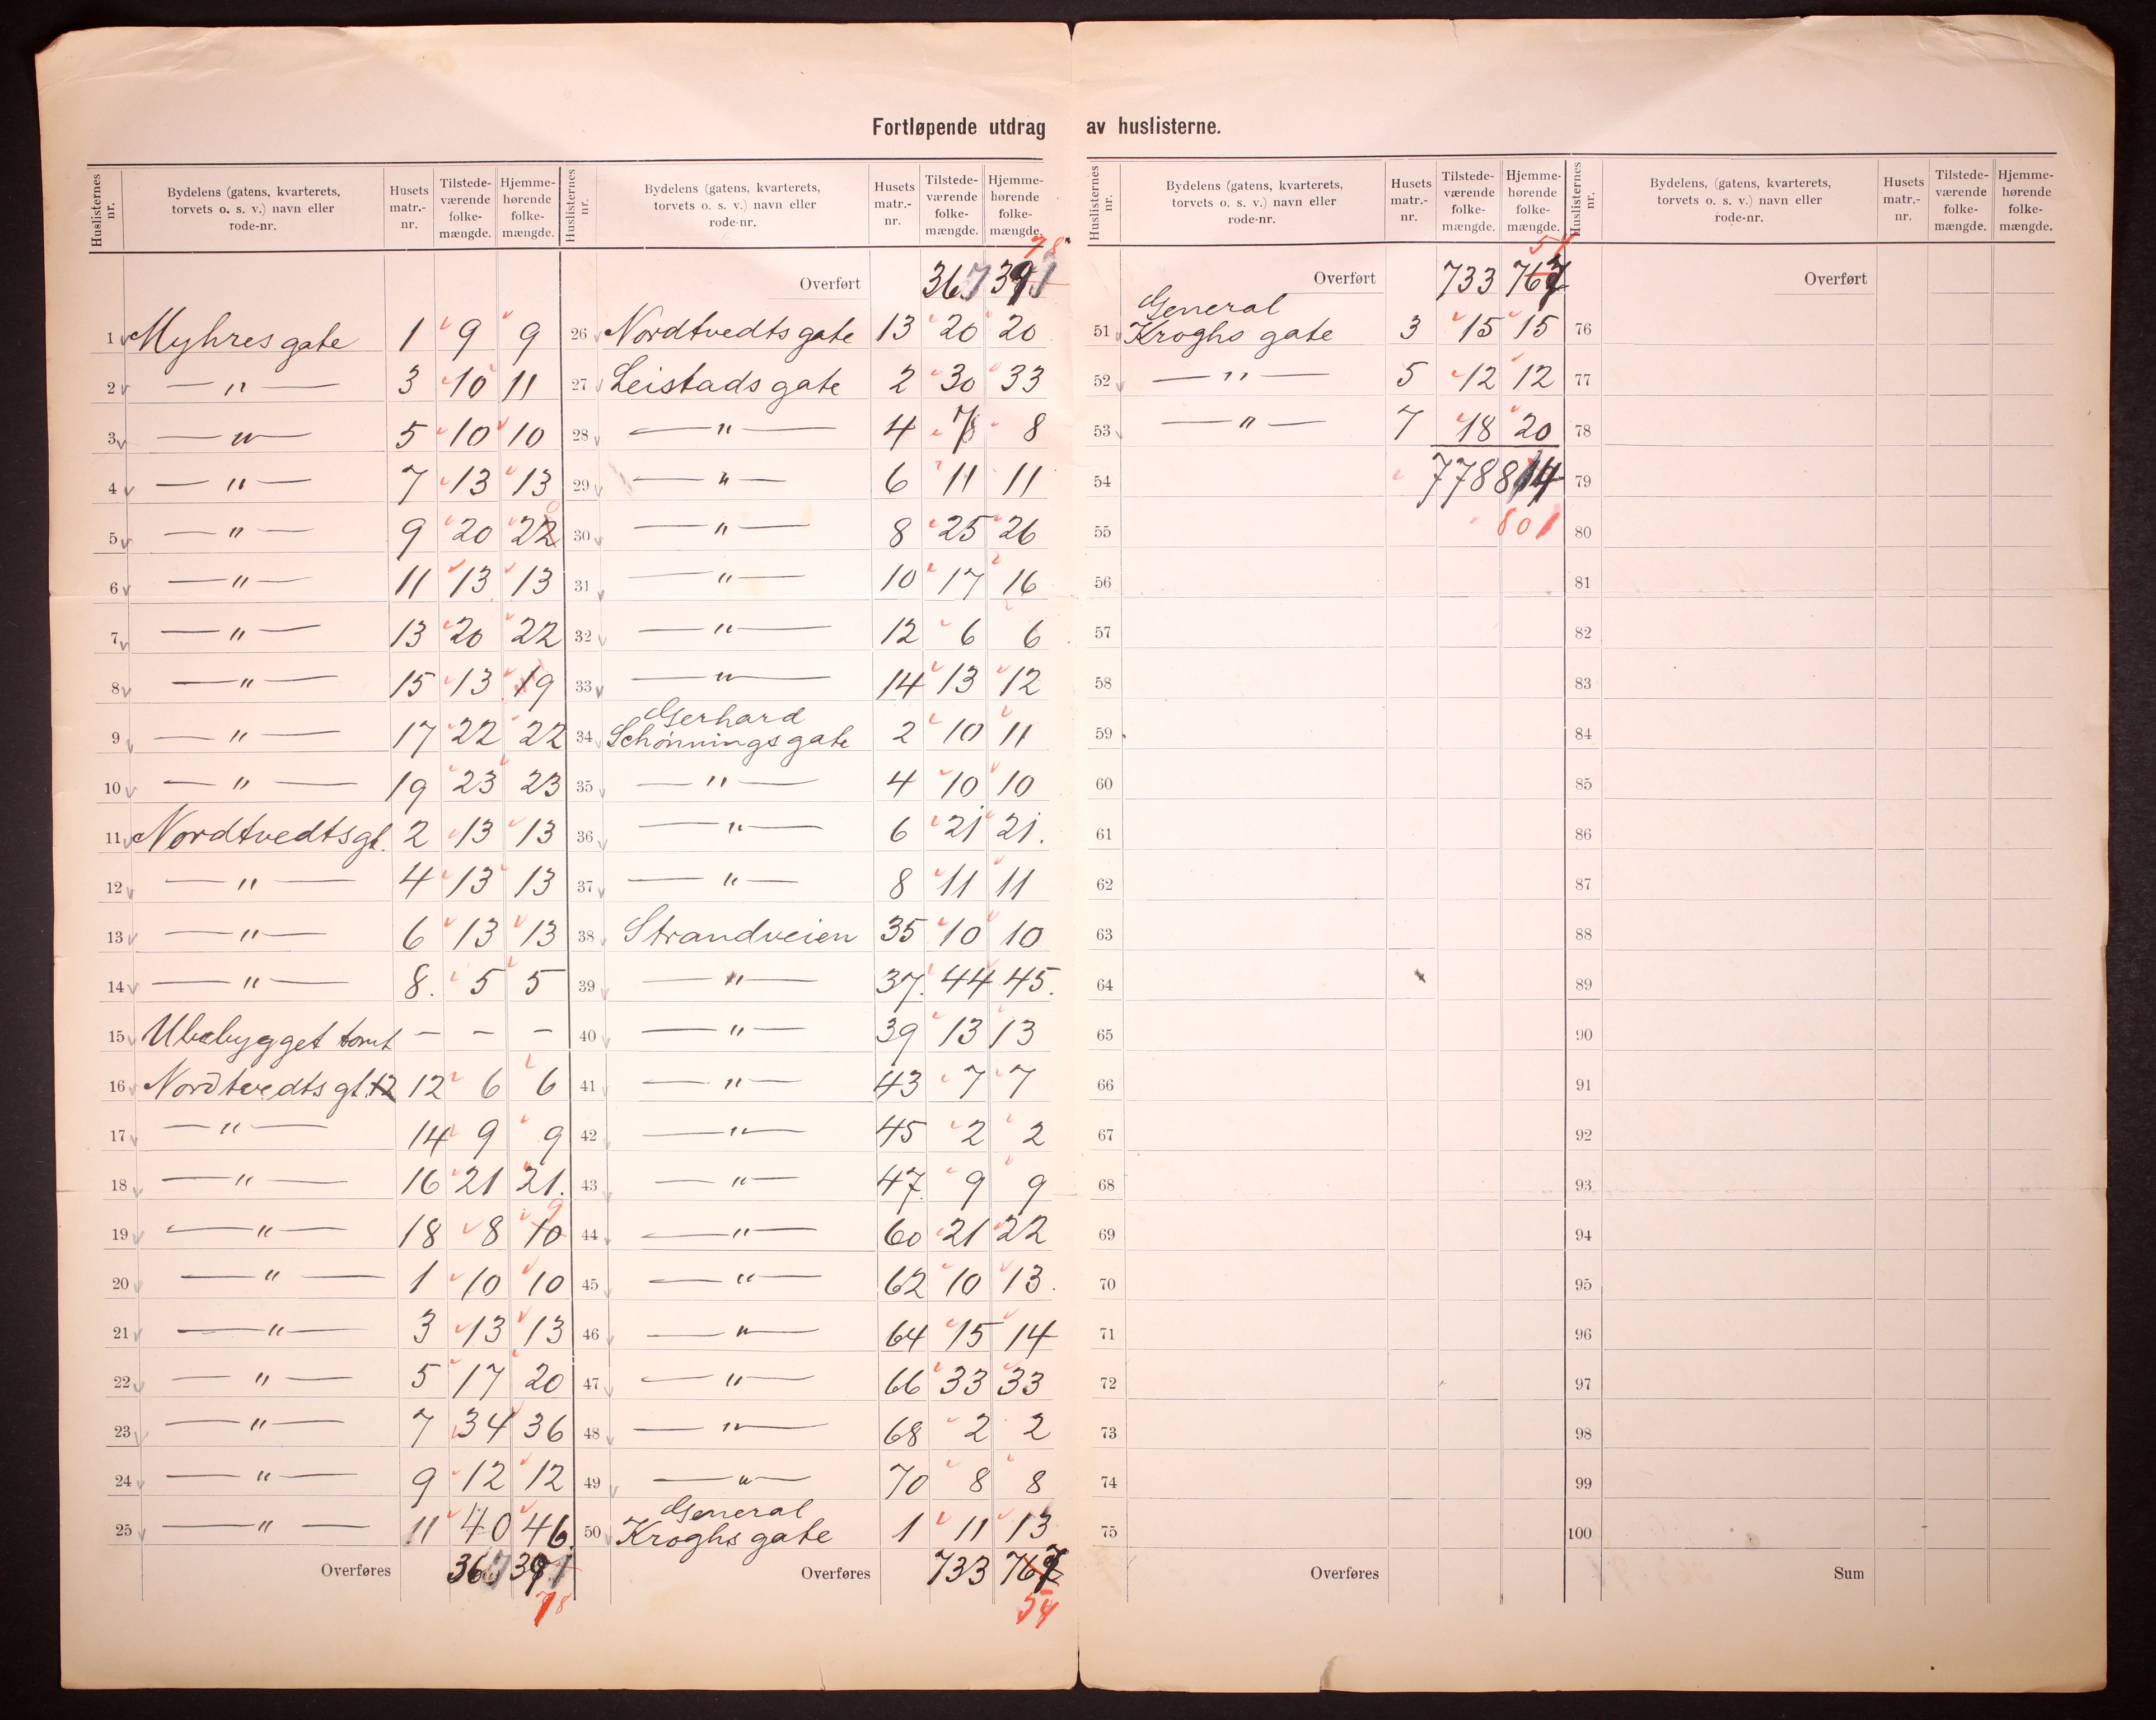 Fortløpende utdrag av huslisterne.
Huslisternes nr. | Bydelens (gatens, kvarterets, torvets o. s. v.) navn eller rode-nr. | Husets matr.-nr. | Tilstede-værende folke-mængde. | Hjemme-hørende folke-mængde.
1 Myhres gate 1 9 9
2 — " — 3 10 11
3 — " — 5 10 10
4 — " — 7 13 13
5 — " — 9 20 22 0
6 — " — 11 13 13
7 — " — 13 20 22
8 — " — 15 13 19
9 — " — 17 22 22
10 — " — 19 23 23
11 Nordtvedtsgt. 2 13 13
12 — " — 4 13 13
13 — " — 6 13 13
14 — " — 8. 5 5
15 Ubebygget tomt — — —
16 Nordtvedts gt. 12 12 6 6
17 — " — 14 9 9
18 — " — 16 21 21.
19 — " — 18 8 10 9
20 — " — 1 10 10
21 — " — 3 13 13
22 — " — 5 17 20
23 — " — 7 34 36
24 — " — 9 12 12
25 — " — 11 40 46.
Overføres 367 391
78
Huslisternes nr. | Bydelens (gatens, kvarterets, torvets o. s. v.) navn eller rode-nr. | Husets matr.-nr. | Tilstede-værende folke-mængde. | Hjemme-hørende folke-mængde.
78
Overført 367 391
26 Nordtvedts gate 13 20 20
27 Leistads gate 2 30 33
28 — " — 4 8 8
29 — " — 6 11 11
30 — " — 8 25 26
31 — " — 10 17 16
32 — " — 12 6 6
33 — " — 14 13 12
34 Gerhard Schønnings gate 2 10 11
35 — " — 4 10 10
36 — " — 6 21 21.
37 — " — 8 11 11
38 Strandveien 35 10 10
39 — " — 37. 44 45.
40 — " — 39 13 13
41 — " — 43 7 7
42 — " — 45 2 2
43 — " — 47. 9 9
44 — " — 60 21 22
45 — " — 62 10 13.
46 — " — 64 15 14
47 — " — 66 33 33
48 — " — 68 2 2
49 — " — 70 8 8
50 General Kroghs gate 1 11 13
Overføres 733 767
54
Huslisternes nr. | Bydelens (gatens, kvarterets, torvets o. s. v.) navn eller rode-nr. | Husets matr.-nr. | Tilstede-værende folke-mængde. | Hjemme-hørende folke-mængde.
54
Overført 733 767
51 General Kroghs gate 3 15 15
52 — " — 5 12 12
53 — " — 7 18 20
54 778 814
55 801
56
57
58
59
60
61
62
63
64
65
66
67
68
69
70
71
72
73
74
75
Overføres
Huslisternes nr. | Bydelens, (gatens, kvarterets, torvets o. s. v.) navn eller rode-nr. | Husets matr.-nr. | Tilstede-værende folke-mængde. | Hjemme-hørende folke-mængde.
Overført
76
77
78
79
80
81
82
83
84
85
86
87
88
89
90
91
92
93
94
95
96
97
98
99
100
Sum